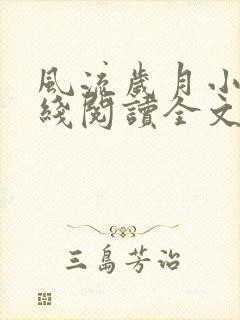 風流歲月小
綫閱讀全文
三島芳治